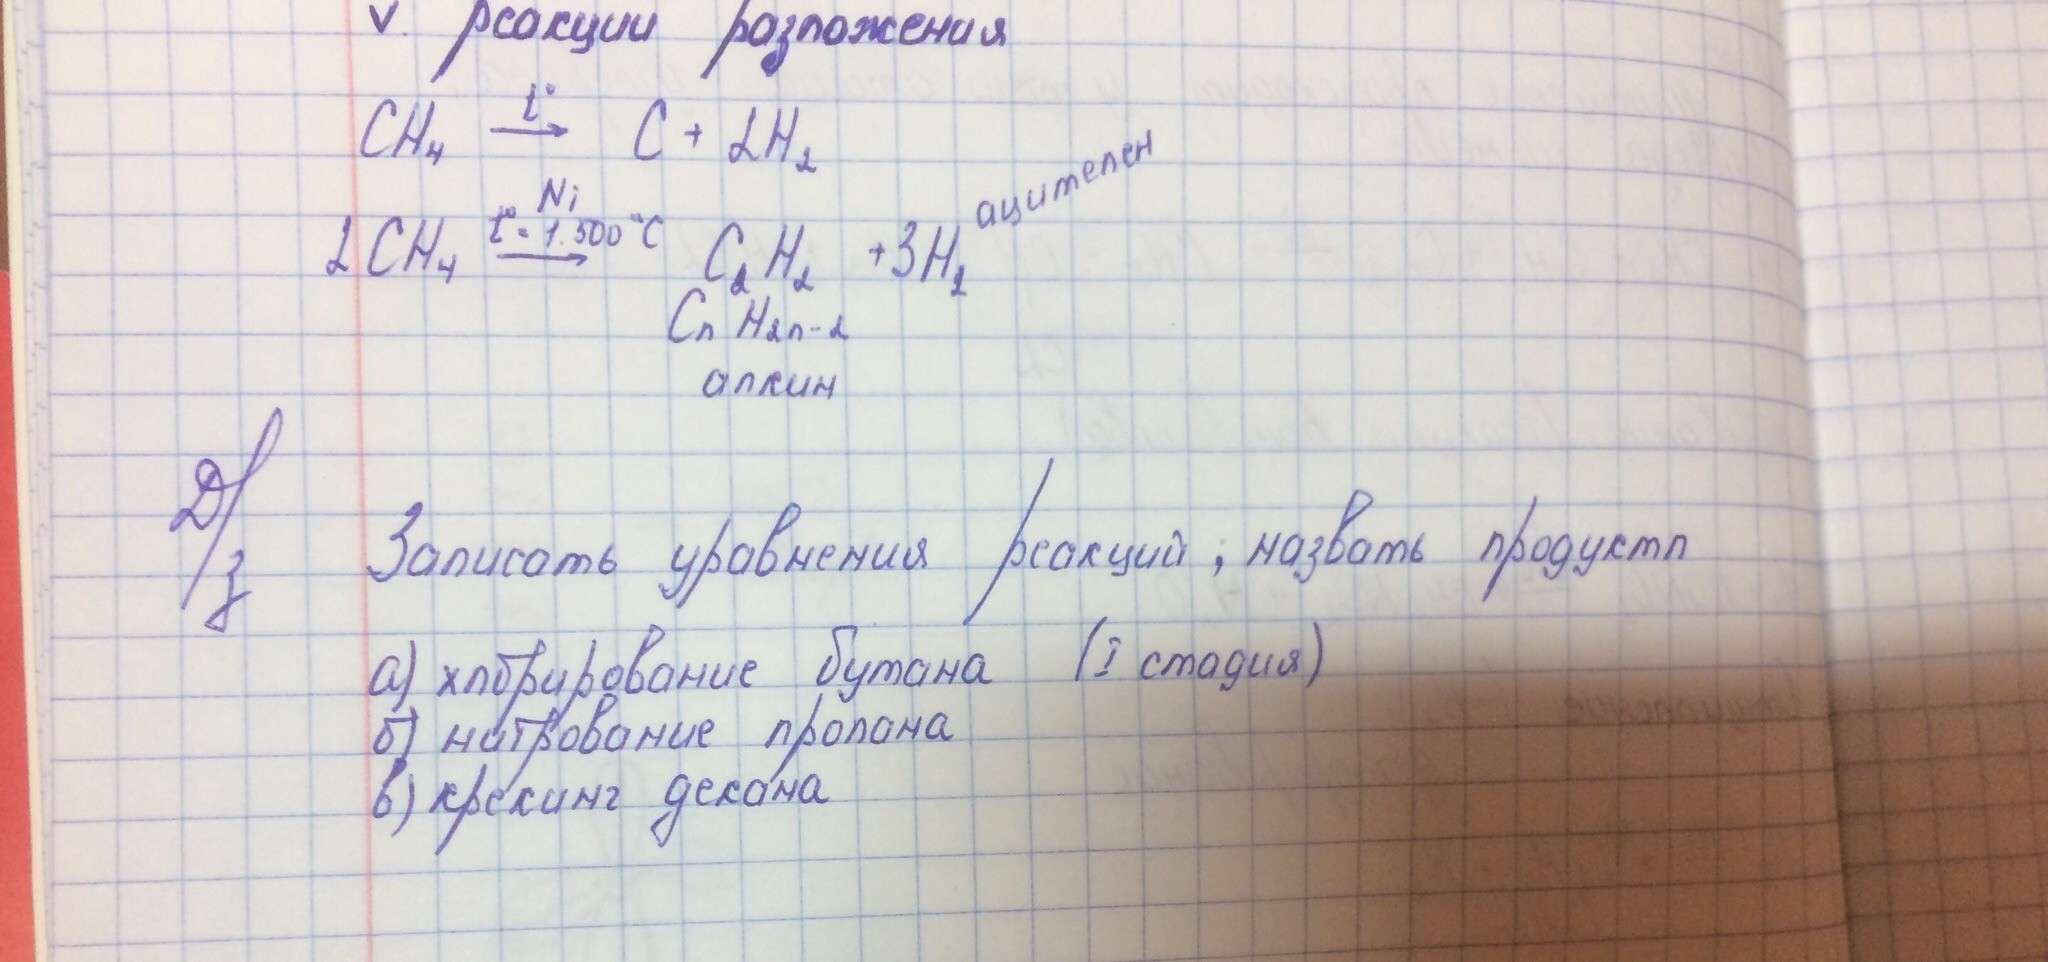 V. реакции разложения
CH₄ t°→ C + 2H₂
ацителен
Ni
2CH₄ t°=1.500°C→ C₂H₂ + 3H₂
CnH2n-2
алкин
Д/з Записать уравнения реакций, назвать продукты
а) хлорирование бутана (I стадия)
б) нитрование пропана
в) крекинг декана